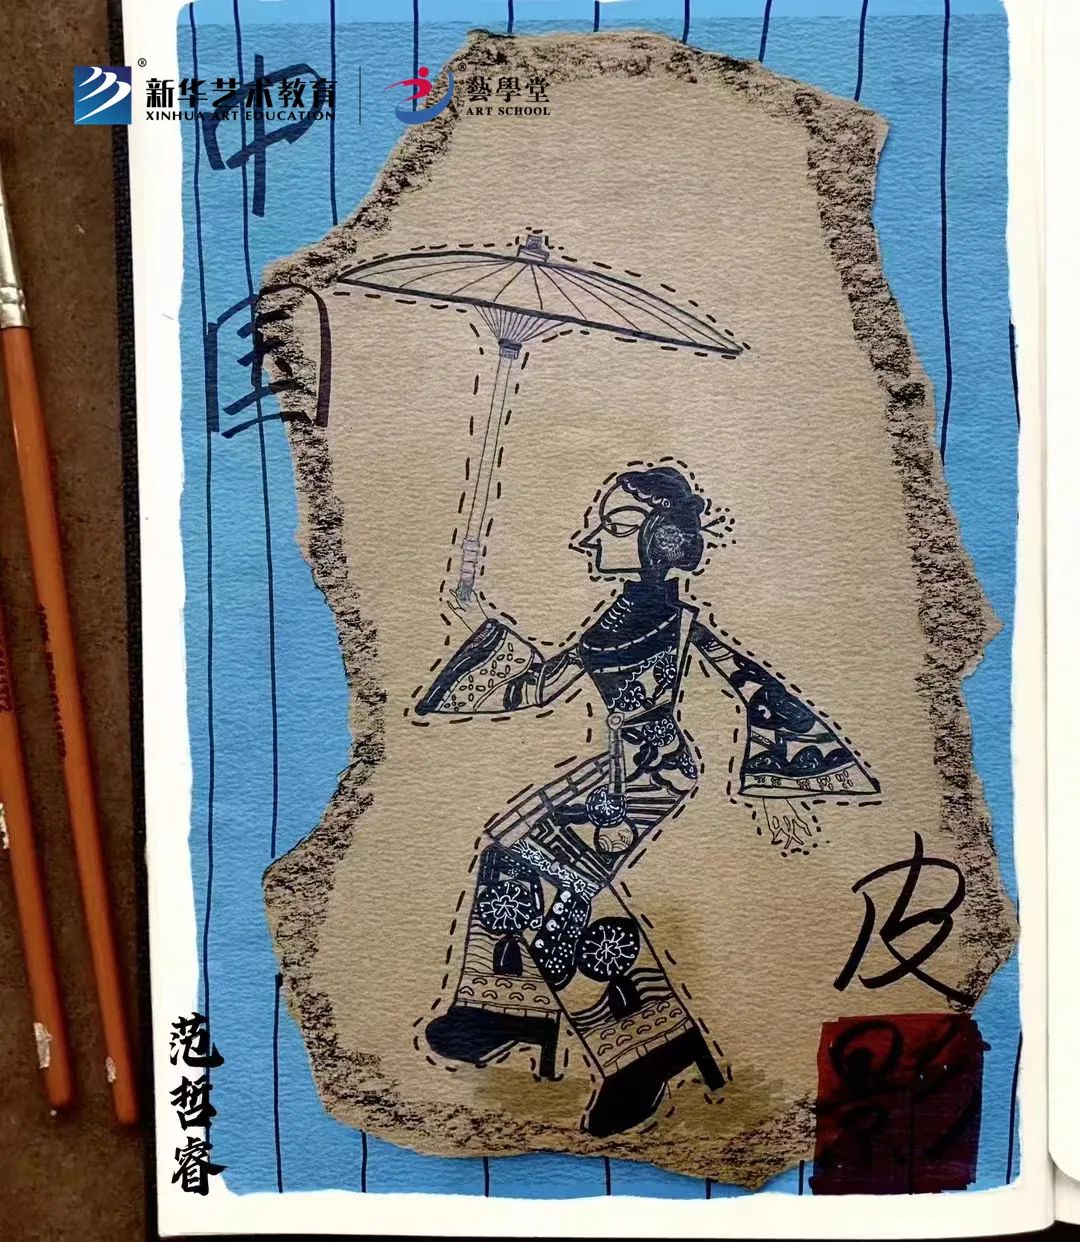 新华艺术教育
XINHUA ART EDUCATION
藝學堂
ART SCHOOL
中
国
皮
影
范
哲
睿